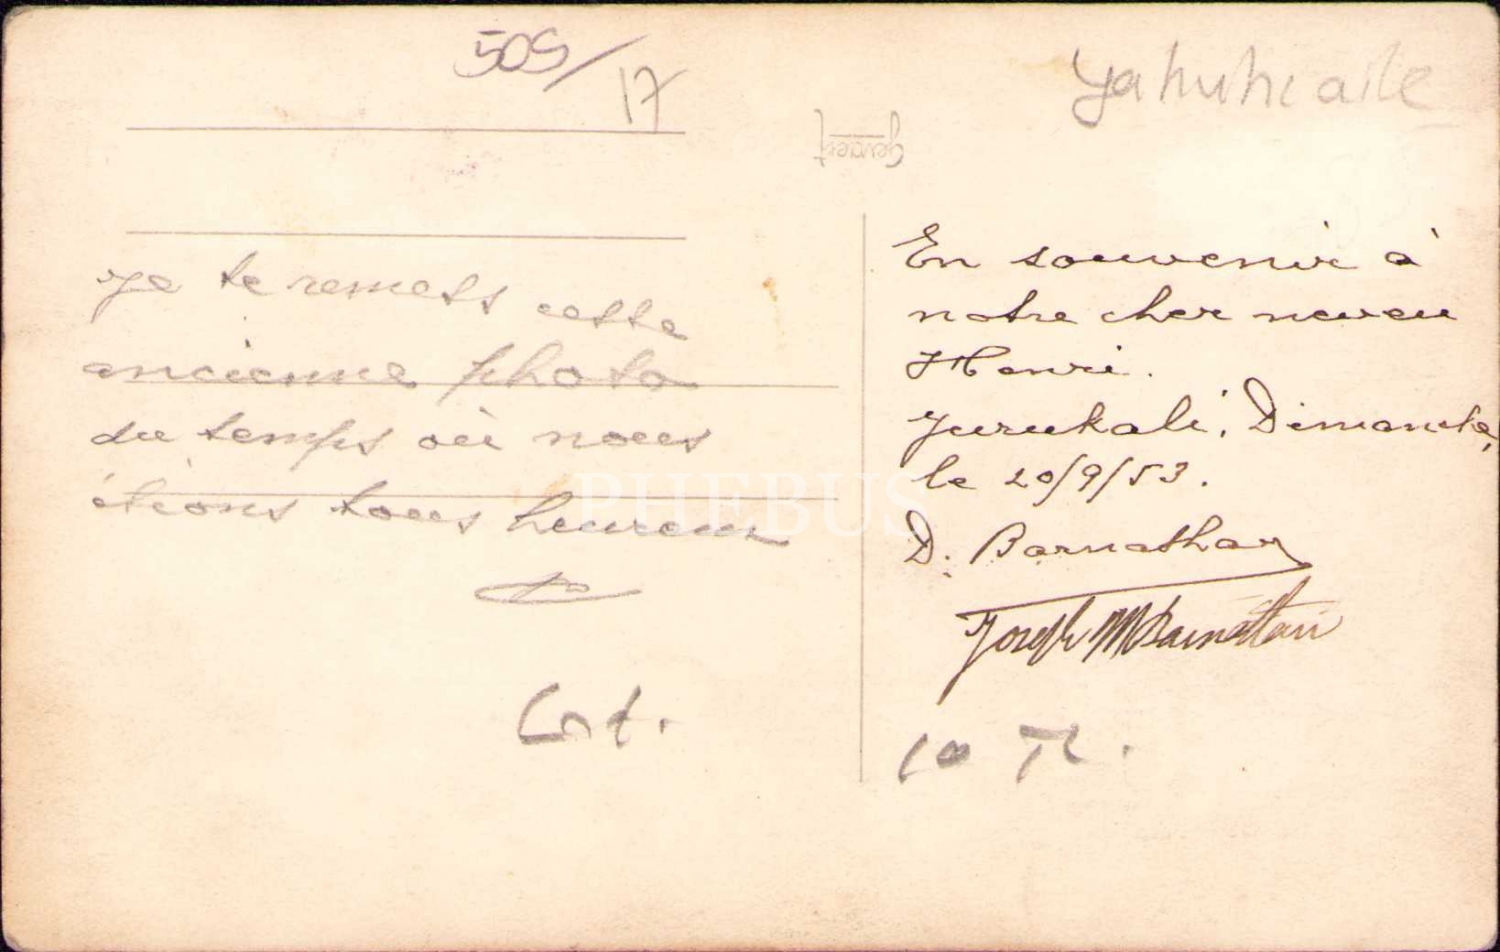 505/17
Yahuhi aile
Gevaert
Je te remets cette
ancienne photo
du temps où nous
étions tous heureux
En souvenir à
notre cher neveu
Henri.
Yurukali, Dimanche,
le 20/9/53.
D. Barnathan
Joseph M Barnathan
10 TL.
PHEBUS